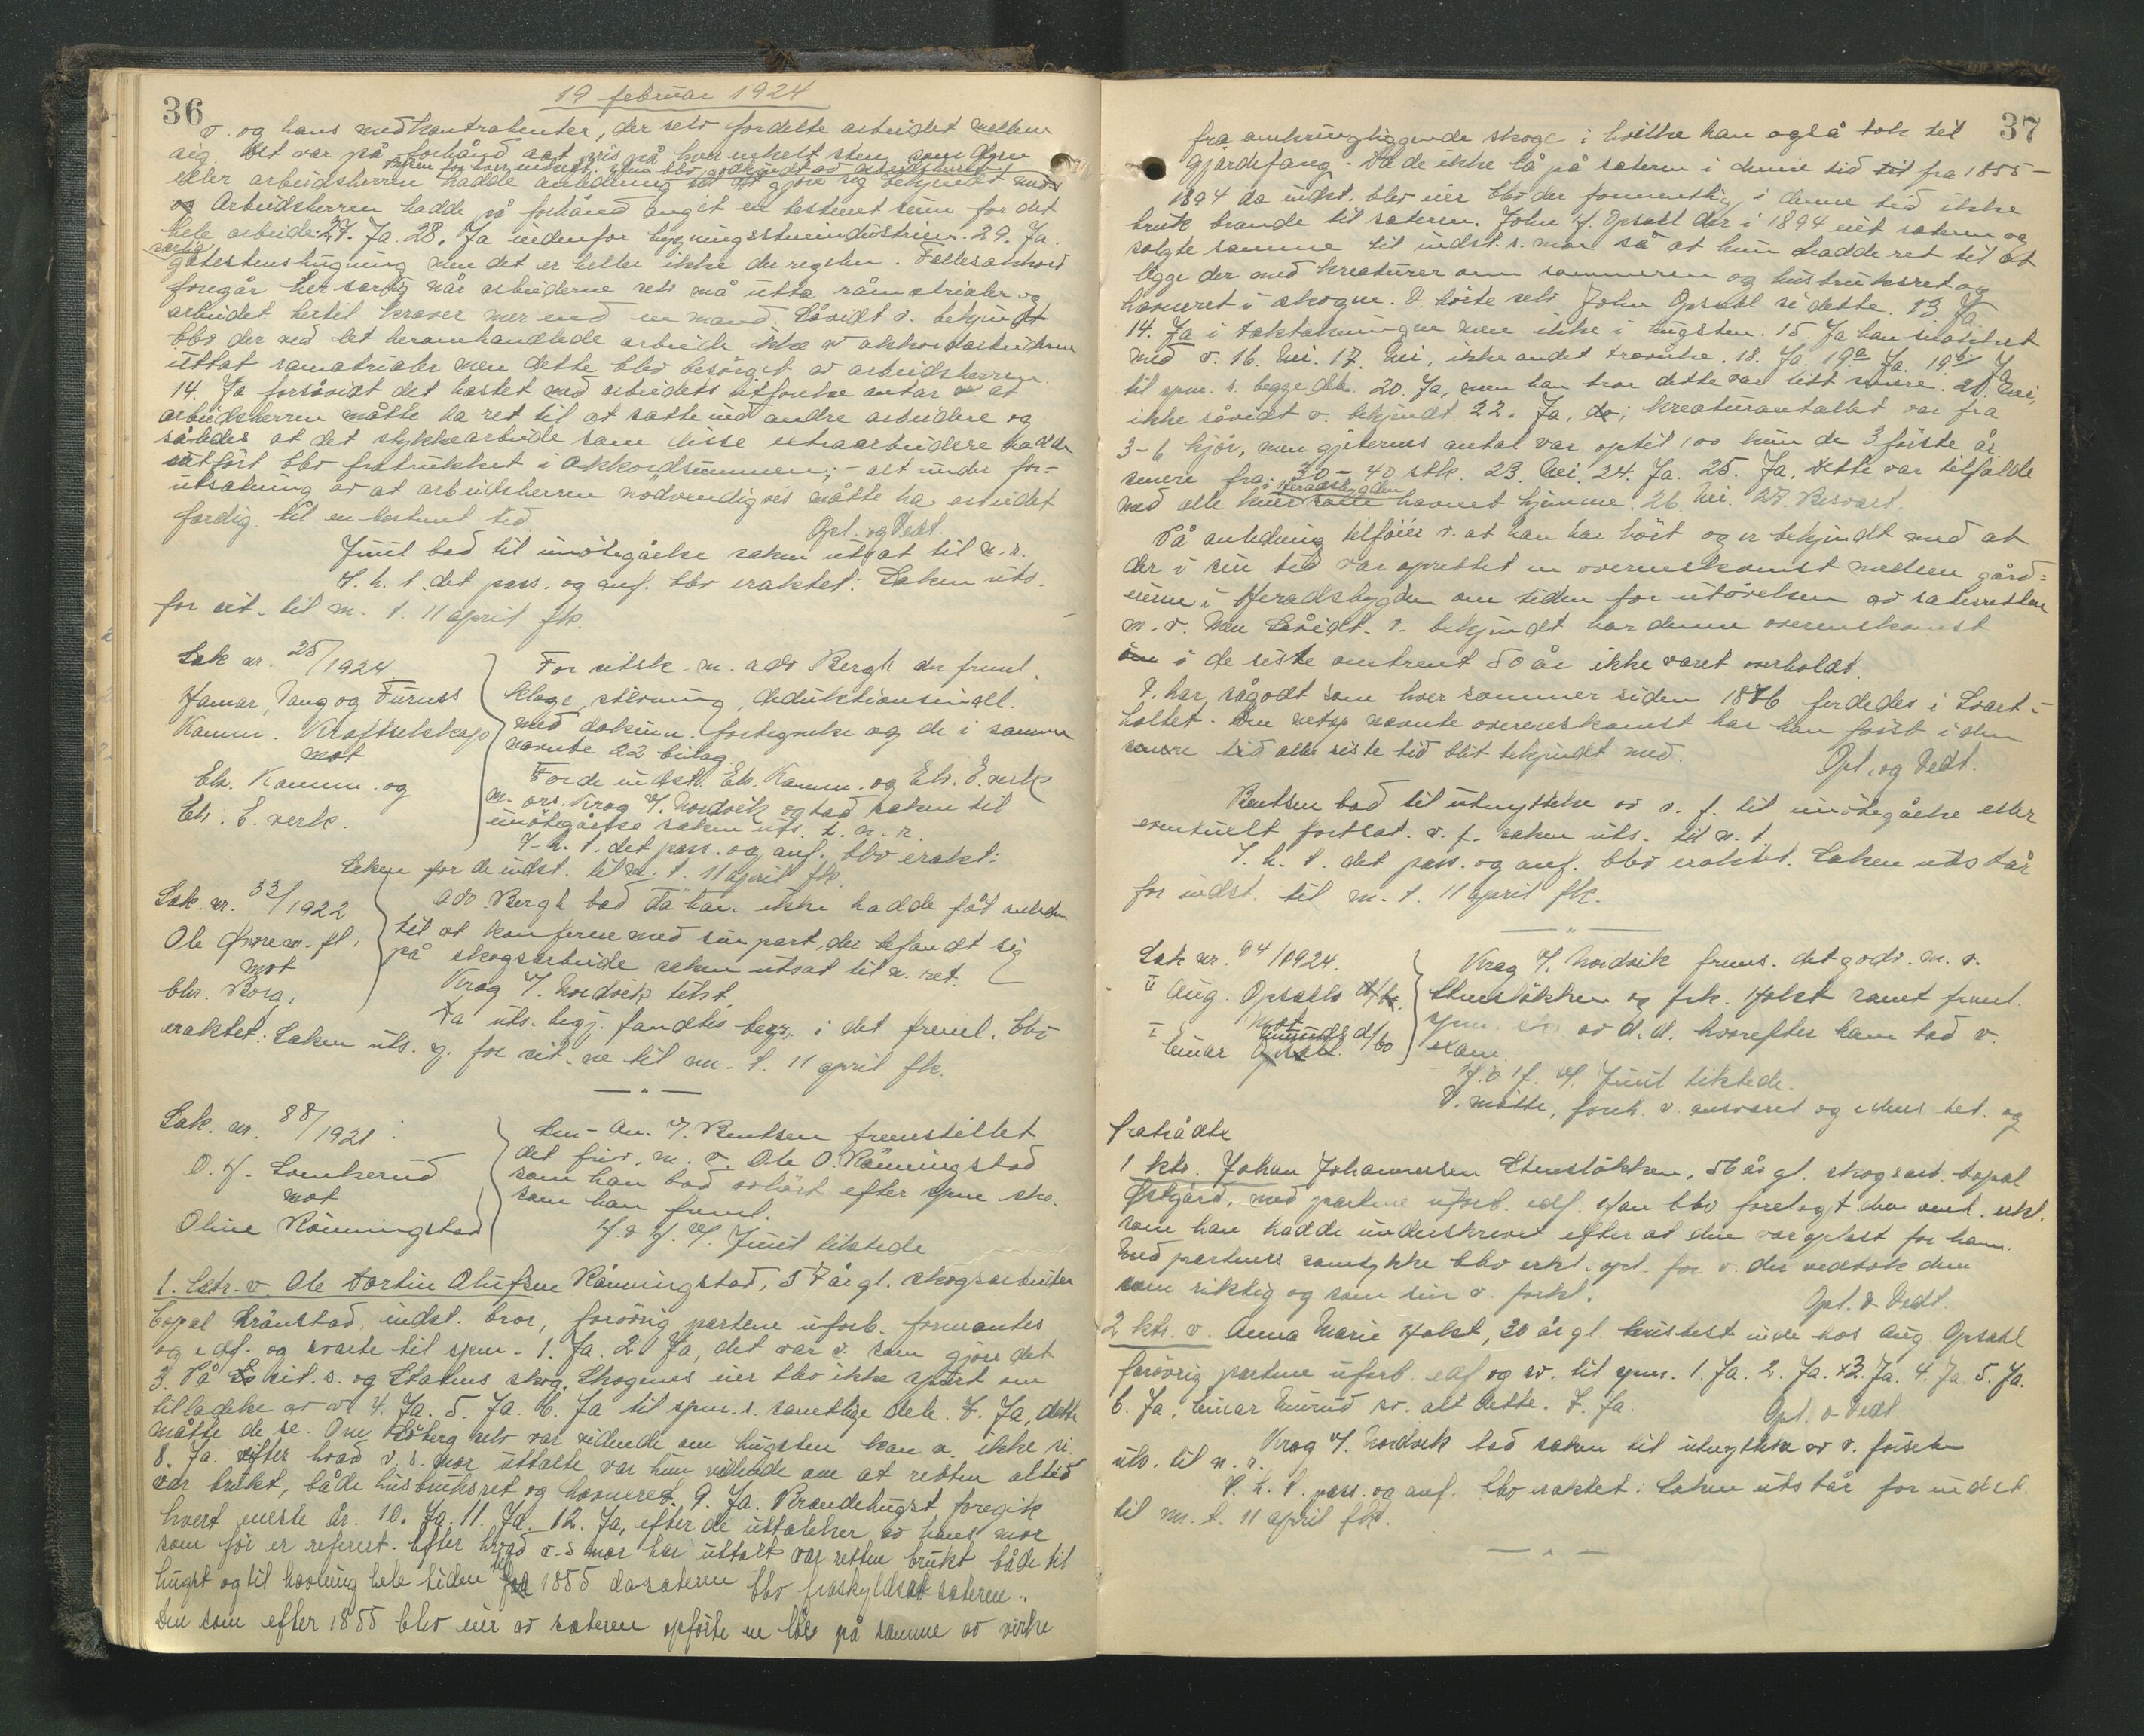 36
19 februar 1924
v. og hans medkontrahenter, der selv fordelte arbeidet mellem
sig. Det var på forhånd sat pris på hver enkelt sten som
blev godkjendt av arbeidsherren
eller arbeidsherren hadde anledning til at gjøre sig bekjendt med
og Arbeidsherren hadde på forhånd angit en bestemt sum for det
hele arbeide. 27. Ja. 28. Ja indenfor bygningsstenindustrien. 29. Ja.
særlig
gatestenshugning men det er heller ikke der regelen. Fellesakkord
foregår her særlig når arbeiderne selv må utta råmatrialer og
arbeidet hertil kræver mer end en mand. Såvidt v. bekjendt
blev der ved det heromhandlede arbeide ikke av akkordarbeiderne
uttat råmatrialer men dette blev besørget av arbeidsherren.
14. Ja forsåvidt det hastet med arbeidets utførelse antar v. at
arbeidsherren måtte ha ret til at sætte ind andre arbeidere og
således at det stykkearbeide som disse extraarbeidere hadde
utført blev fratrukket i akkordsummen; - alt under for-
utsætning av at arbeidsherren nödvendigvis måtte ha arbeidet
færdig til en bestemt tid.
Opl. og Vedt.
Juul bad til imötegåelse saken utsat til n. r.
S. h. t. det pass. og anf. blev eraktet: Saken uts.
for cit. til m. t. 11 april fk.
Sak nr. 25/1924
Hamar, Vang og Furnes
Komm. Kraftselskap
mot
Elv. Komm. og
Elv. E. verk.
For citsk. m. adv Bergh der freml.
klage, stevning, deduktionsindl.
med dokum. fortegnelse og de i samme
nævnte 22 bilag.
For de indst. Elv. Komm. og Elv. E. verk
m. ors. Krag v/ Nordvik og bad saken til
imötegåelse saken uts. t. n. r.
S. h. t. det pass. og anf. blev erakt:
Saken for de indst. til m. t. 11 april fk.
Sak. nr. 33/1922
Ole m. fl.
mot
Chr. Borg.
adv. Bergh bad da han ikke hadde fåt anledn.
til at konferere med sin part, der befandt sig
på skogsarbeide saken utsat til n. ret.
Krag v/. Nordvik tilst.
Da uts. begj. fandtes begr. i det freml. blev
eraktet: Saken uts. g. for cit. ne til m. t. 11 april fk.
Sak. nr. 88/1921
O. H. Lomkerud
mot
Oline Rönningstad
Lm- An. v/. Bentsen fremstillet
det friv. m. v. Ole O. Rönningstad
som han bad avhört efter spm sko.
som han freml.
H. v H. v/. Juul tilstede
1. kstr. v. Ole Martin Olufsen Rönningstad, 57 år gl. skogsarbeider
bopel Grönstad, indst. bror, forövrig partene uforb. formantes
og edf. og svarte til spm. 1. Ja. 2. Ja, det var v. som gjorde det
3. På cit. s. og Statens skog. Skogenes eier blev ikke spurt om
tilladelse av v. 4. Ja. 5. Ja. 6. Ja til spm. s. samtlige dele. 7. Ja, dette
måtte de se. Om selv var vidende om hugsten kan v. ikke si.
8. Ja. efter hvad v. s. mor uttalte var hun vidende om at retten altid
var brukt, både husbruksret og havneret. 9. Ja. Brandehugst foregik
hvert eneste år. 10. Ja. 11. Ja. 12. Ja, efter de uttalelser av hans mor
som før er referert. Efter hvad v. s mor har uttalt var retten brukt både til
hugst og til havning hele tiden til 1855 da sæteren blev fraskyldsat sæteren.
Den som efter 1855 blev eier av sæteren opförte en på samme av virke
37
fra omkringliggende skoge i hvilke han også tok til
gjærdefang. Da de ikke lå på sæteren i denne tid fra 1855-
1894 da indst. blev eier blev der formentlig i denne tid ikke
bruk brande til sæteren. John J. Opsahl der i 1894 eiet sæteren og
solgte samme til indst. s. mor så at hun hadde ret til at
ligge der med kreaturer om sommeren og husbruksret og
havneret i skogen. V. hörte selv John Opsahl si dette. 13 Ja
14. Ja i men ikke i hugsten. 15. Ja han snakket
med v. 16. Nei. 17. Nei, ikke andet trævirke. 18. Ja. 19a Ja. 19b Ja
til spm. s. begge dele. 20. Ja, men han tror dette var litt senere. 21. Nei,
ikke såvidt v. bekjendt 22. Ja, kreaturantallet var fra
3-6 kjör, men gjeternes antal var optil 100 kun de 3 förste år
senere fra 30-40 stk. 23. Nei. 24. Ja. 25. Ja. Dette var tilfælde
i Heradsbygden
med alle havnet hjemme. 26. Nei. 27. Besvart.
På anledning tilföier v. at han har hört og er bekjendt med at
der i sin tid var oprettet en overenskomst mellem gård-
eierne i Heradsbygden om tiden for utövelsen av sæterretten
m. v. Men Såvidt v. bekjendt har denne overenskomst
i de siste omtrent 50 år ikke været overholdt.
V. har sågodt som hver sommer siden 1876 ferdedes i Svart-
holtet. Den netop nævnte overenskomst har han först i den
senere tid aller siste tid blit bekjendt med.
Opl. og Vedt.
Bentsen bad til utnyttelse av v. f. til imötegåelse eller
eventuelt fortsat. v. f. saken uts. til n. t.
S. h. t. det pass. og anf. blev eraktet. Saken utstår
for indst. til m. t. 11 april fk.
Sak nr. 94/1924.
II Aug. Opsahls d/bo.
mot
I Einar d/bo
Krag v/. Nordvik frems. det godv. m. v.
Stenslökken og frk. Holst samt freml.
spm. av d. d. hvorefter ham bad v.
exam.
H. v H. v/. Juul tilstede.
V. mötte, foreh. v. ansvaret og edens bet. og
fratrådte
1 ktr. Johan Johannesen Stenslökken, 56 år gl. skogsarb. bopæl
Östgård, med partene uforb. edf. Han blev forelagt den erkl.
som han hadde underskrevet efter at den var oplæst for ham.
Med partenes samtykke blev erkl. opl. for v. der vedtok den
som riktig og som sin v. forkl.
Opl. & Vedt.
2 ktr. v. Anna Marie Holst, 30 år gl. husbest inde hos Aug. Opsahl
forövrig partene uforb. edf og sv. til spm. 1. Ja. 2. Ja. 3. Ja. 4. Ja 5. Ja.
6. Ja, Einar sv. alt dette. 7. Ja.
Opl. & Vedt
Krag v/. Nordvik bad saken til utnyttelse av v. förselen
uts. til n. r.
S. h. t. pass. og anf. blev eraktet: Saken utstår for indst.
til m. t. 11 april fk.